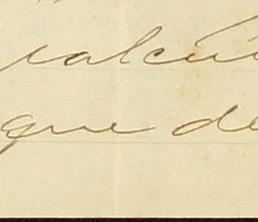 calcu
que de